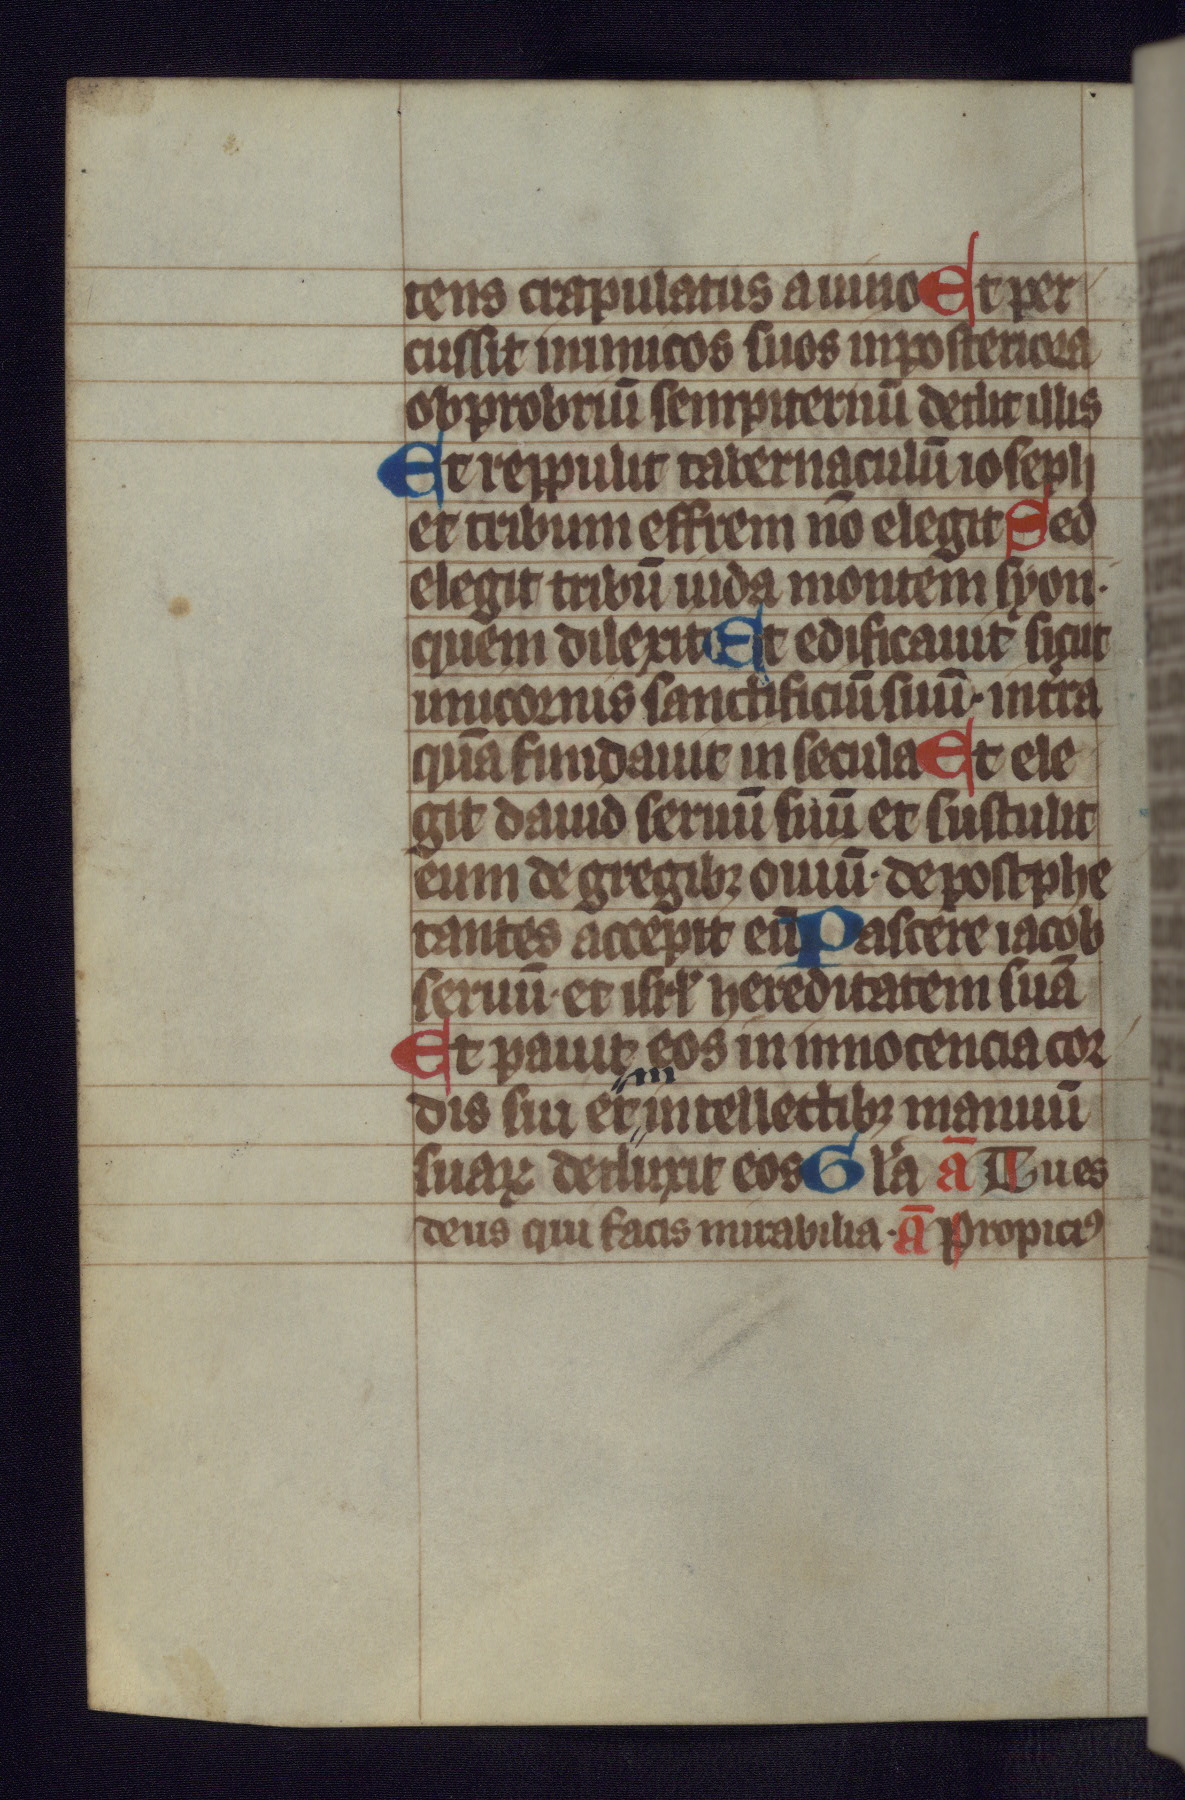 tens crapulatus a uino Et per
cussit inimicos suos in posteriora
obprobriū sempiternū dedit illis
Et reppulit tabernaculū ioseph
et tribum effrem nō elegit Sed
elegit tribū iuda montem syon·
quem dilexit Et edificauit sicut
unicornis sanctificiū suū· in t̄ra
quā fundauit in secula Et ele
git dauid seruū suū et sustulit
eum de gregibꝫ ouiū· de post phe
tantes accepit eū Pascere iacob
seruū· et isrl̄ hereditatem suā
Et pauit eos in innocencia cor
dis sui et in intellectibꝫ manuū
suaꝝ deduxit eos Gl̄a ā Tu es
deus qui facis mirabilia· ā Propiciꝰ